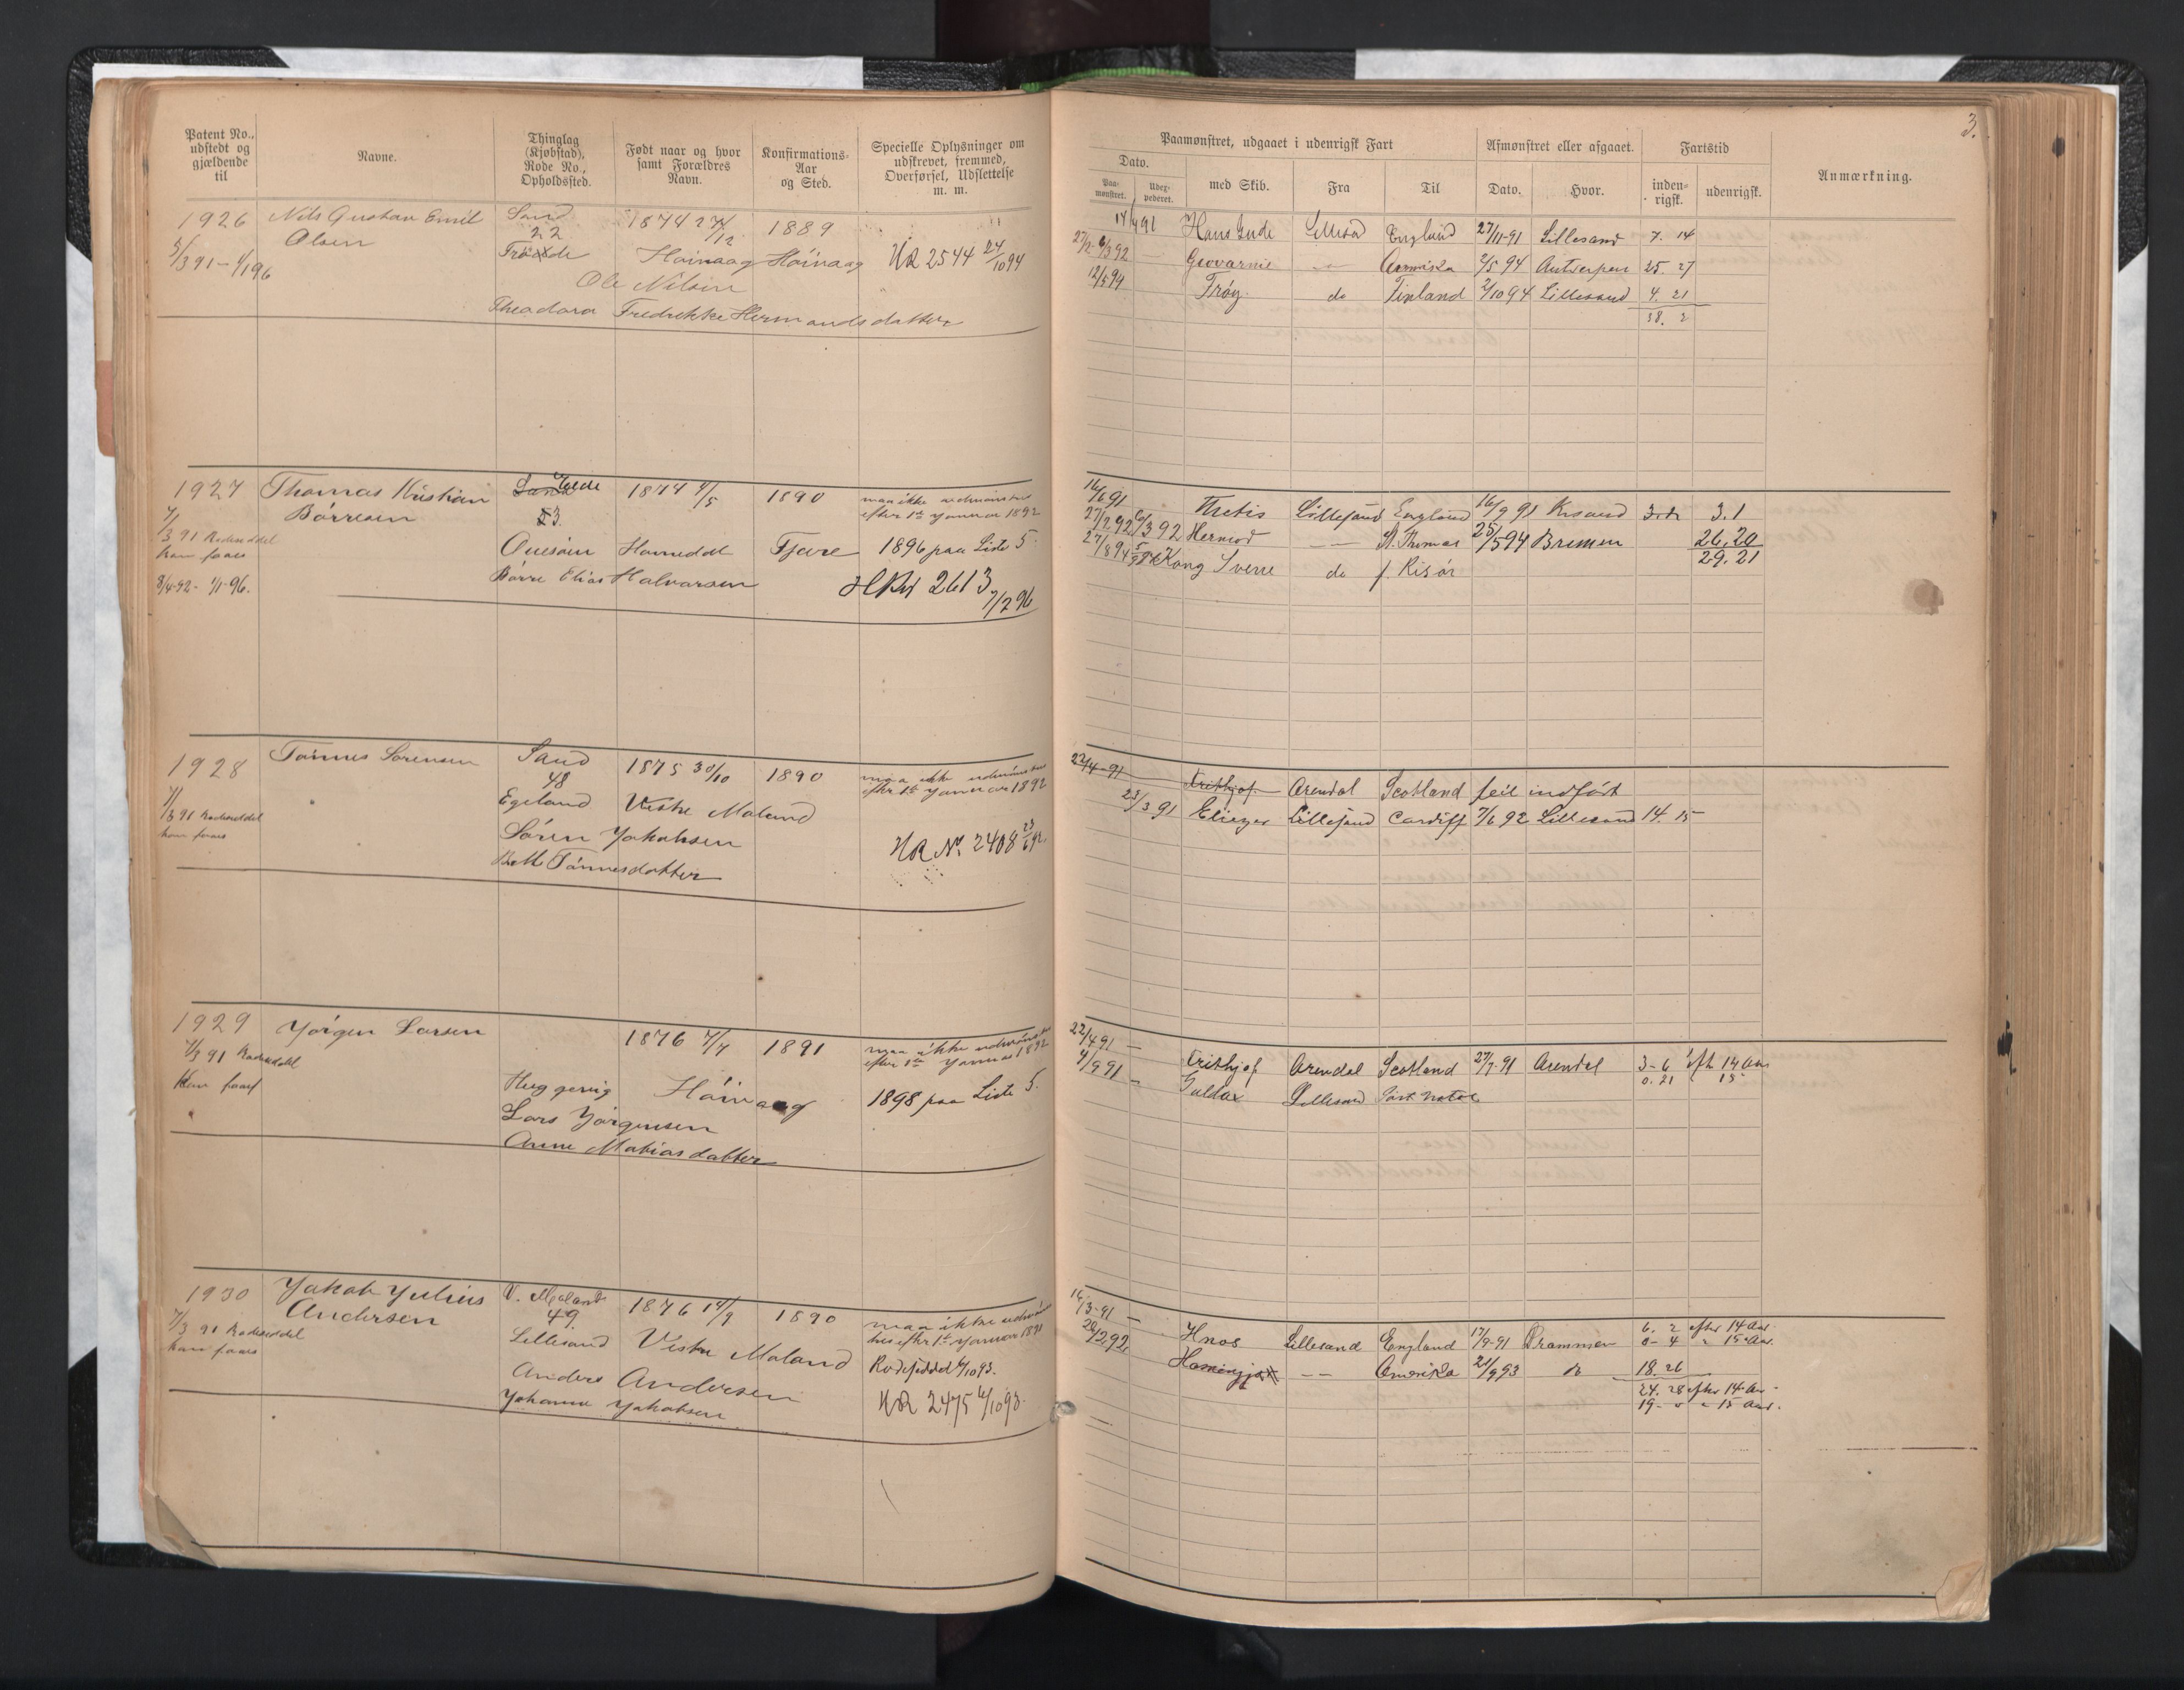 Patent No.,
udstedt og
gjældende
til
Navne.
Thinglag
(Kjøbstad),
Rode No.,
Opholdssted.
Født naar og hvor
samt Forældres
Navn.
Konfirmations-
Aar
og Sted.
Specielle Oplysninger om
udskrevet, fremmed,
Overførsel, Udslettelse
m. m.
1926 Nils Gustav Emil Sand 1874 27/12 1889
Olsen 22
5/3 91 – 1/1 96 Høivaag Høivaag HR 2544 24/10 94
Ole Nilsen
Theodora Fredrikke Hermandsdatter
1927 Thomas Kristian Sand 1874 4/5 1890 maa ikke udmønstres
Børresen 23. efter 1ste Januar 1892
7/3 91 Rodeseddel
kan faaes Homedal Fjære 1896 paa Liste 5
8/4 92 - 1/1 96. Børre Elias Halvorsen
HRv 2613 7/2 96
1928 Tønnes Sørensen Sand 1875 30/10 1890 maa ikke udmønstres
48 efter 1ste Januar 1892
7/3 91 Rodeseddel Egeland Vestre Moland
kan faaes Søren Jakobsen HR No. 2408 23/6 92
Tønnesdatter
1929 Jørgen Larsen 1876 7/7 1891 maa ikke udmønstres
7/3 91 Rodeseddel efter 1ste Januar 1892
Kan faaes Høivaag 1898 paa Liste 5.
Lars Jørgensen
Anne Mathiasdatter
1930 Jakob Julius V. Moland 1876 14/9 1890
Andersen 49. maa ikke udmøns-
7/3 91 Rodeseddel Lillesand Vestre Moland tres efter 1ste Januar
kan faaes Rodeseddel 6/10 93.
Anders Andersen
Johanne Jakobsen HR 2475 6/10 93.
3.
Paamønstret, udgaaet i udenrigsk Fart
Afmønstret eller afgaaet.
Fartstid
Anmærkning.
Dato.
Paa-
mønstret.
Udex-
pederet.
med Skib.
Fra
Til
Dato.
Hvor.
inden-
rigsk.
udenrigsk.
14/4 91 Hans Gude England 27/11 91 Lillesand 7. 14
2/5 94 Antwerpen 25. 27
12/5 94 Frøy. do Finland 2/10 94 Lillesand 4. 21
38. 2
16/6 91 Thetis Lillesand England 16/9 91 Krsand 3.1
27/2 92 6/3 92 Hermod — St. Thomas 25/5 94 Bremen 26. 20
29. 21
27/8 94 Kong Sverre do f. Risør
22/4 91 Frithjof Arendal Scotland feil indført
23/3 91 Eliezer Lillesand Cardiff 7/6 92 Lillesand 14. 15
22/4 91 — Frithjof Arendal Scotland 27/7 91 Arendal 3 - 6 eft 14 Aar
0. 21 " 15
4/9 91 — Lillesand Port Natal
14/3 91 — Lillesand England 17/9 91 Drammen 6. 2 efter 14 Aar.
0 - 4 " 15 Aar.
20/2 92 — Amerika 21/9 93 do 18. 26
24. 28 efter 14 Aar
19 - " 15 Aar.